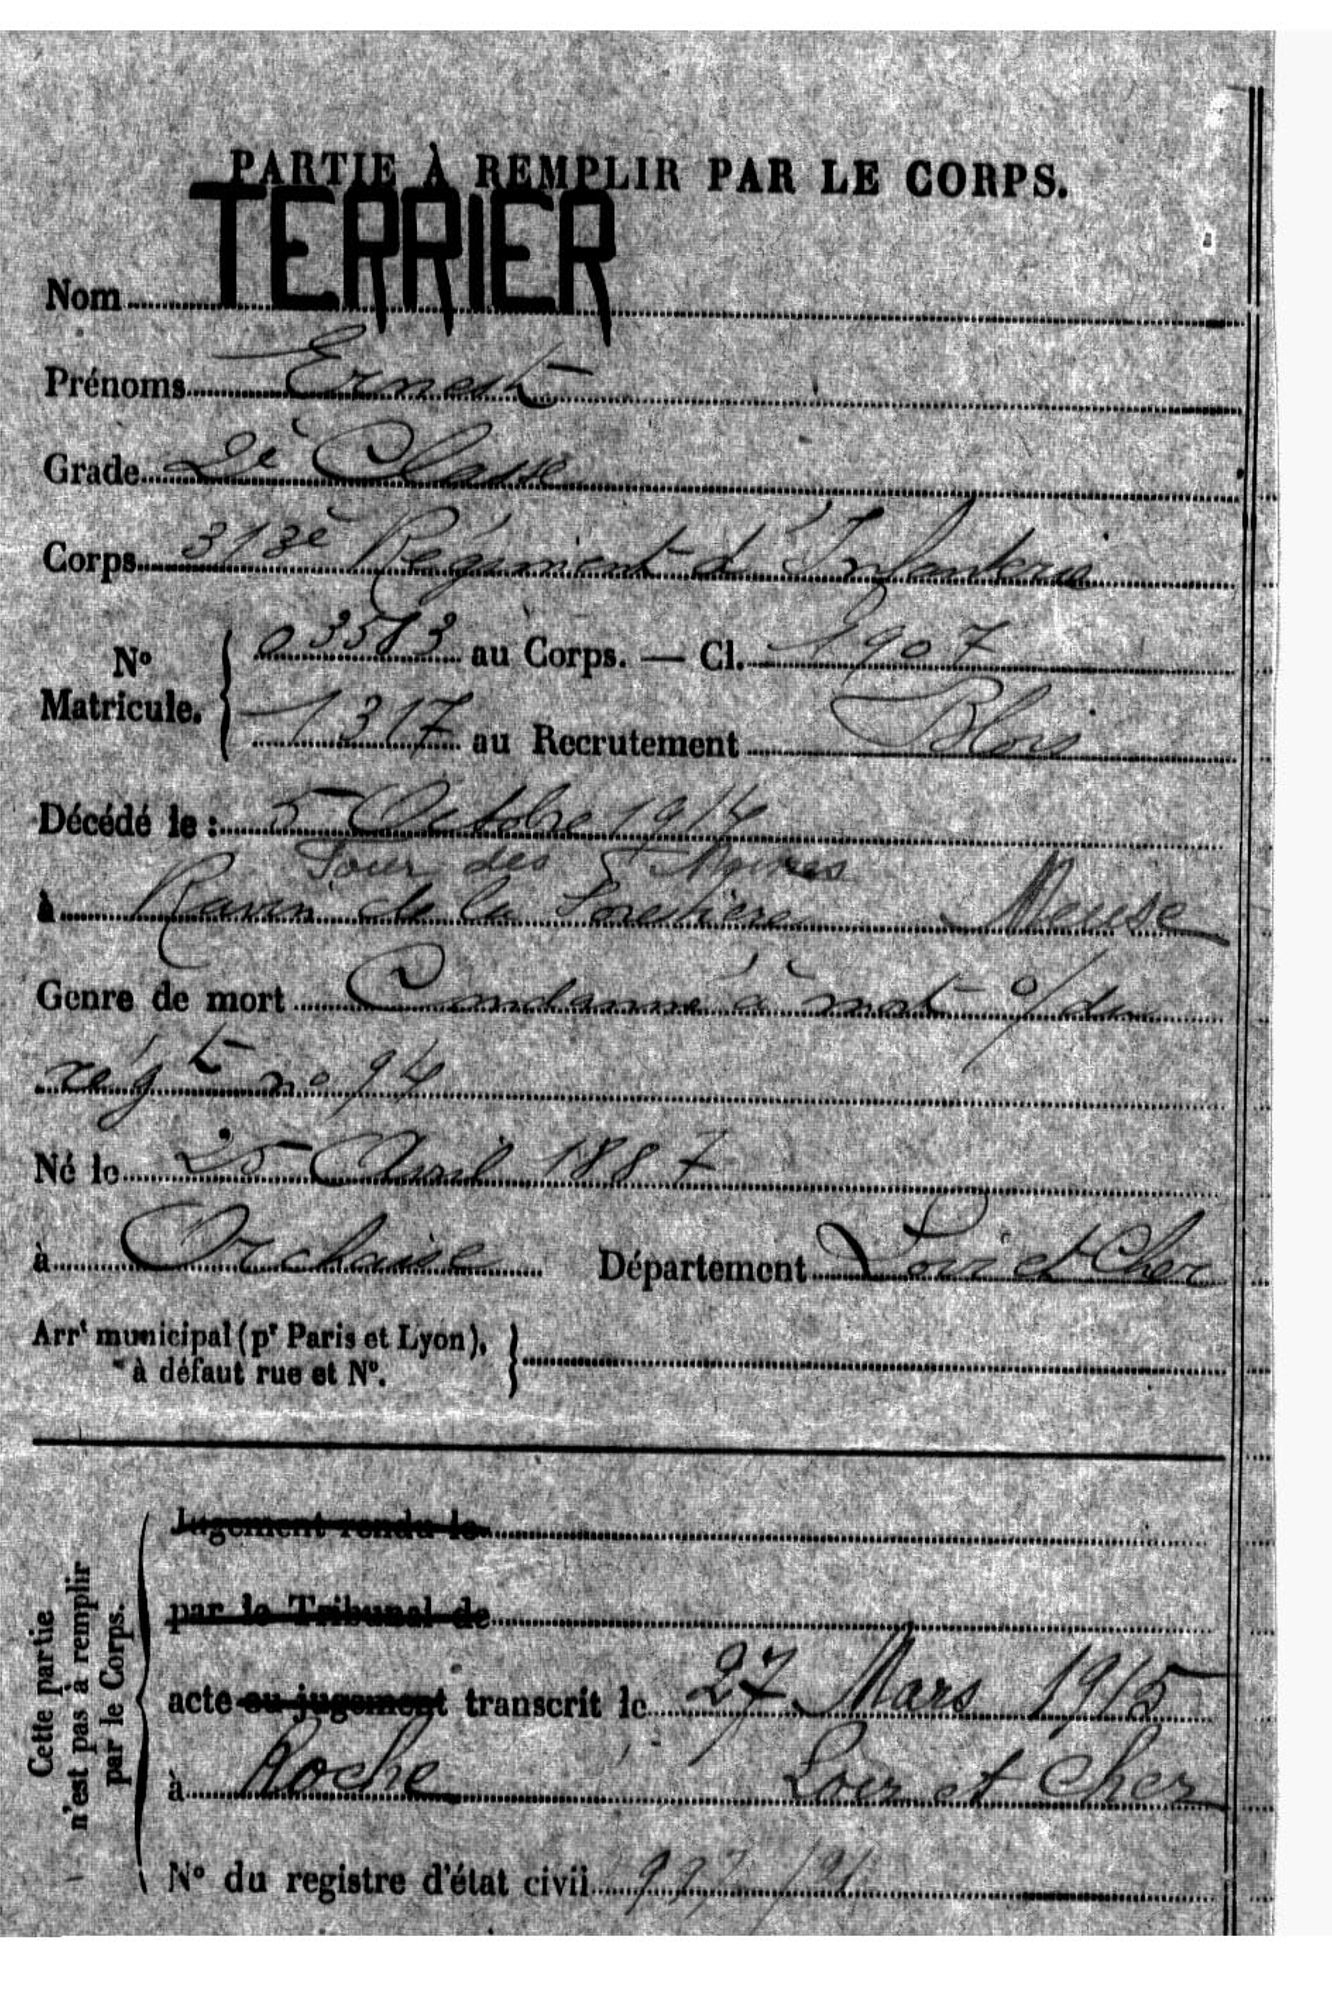 PARTIE À REMPLIR PAR LE CORPS.
Nom TERRIER
Prénoms Ernest
Grade 2è Classe
Corps 313è Régiment d'Infanterie
N° Matricule. 03583 au Corps. — Cl. 1907
1317 au Recrutement Blois
Décédé le : 5 Octobre 1914
Four des
à Ravin de la Forestière Meuse
Genre de mort Condamné à mort o/du
régt no 94
Né le 25 Avril 1887
à Orchaise Département Loir et Cher
Arrt municipal (pr Paris et Lyon),
à défaut rue et N°.
Cette partie
n'est pas à remplir
par le Corps.
Jugement rendu le
par le Tribunal de
acte ou jugement transcrit le 27 Mars 1915
à Roche Loir et Cher
N° du registre d'état civil